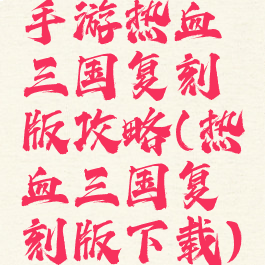 手游热血
三国复刻
版攻略(热
血三国复
刻版下载)